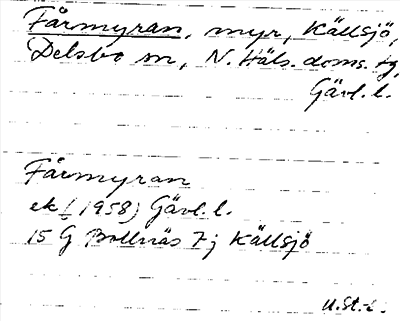 Fårmyran, myr, Källsjö,
Delsbo sn, N. Häls. doms. tg,
Gävl. l.
Fårmyran
ek (1958) Gävl. l.
15 G Bollnäs 7j Källsjö
U.St-t.